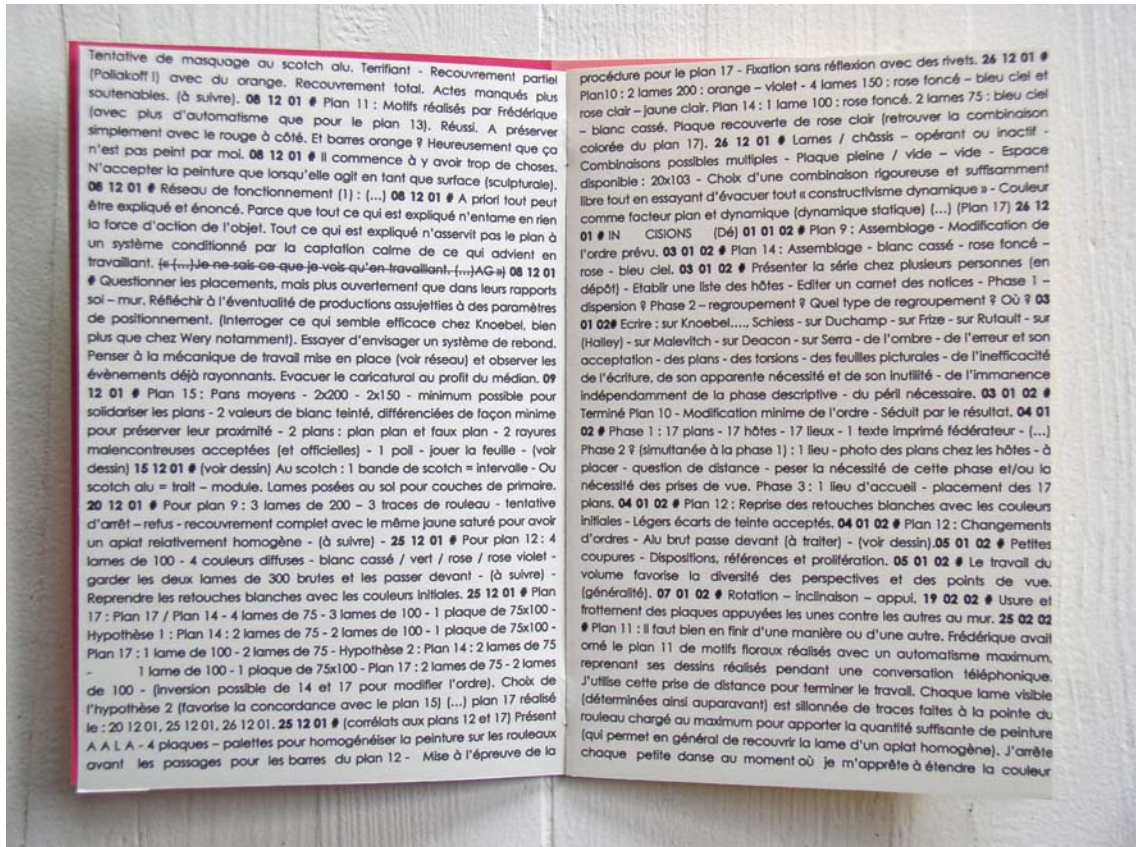 Tentative de masquage au scotch alu. Terrifiant - Recouvrement partiel
(Poliakoff !) avec du orange. Recouvrement total. Actes manqués plus
soutenables. (à suivre). 08 12 01 # Plan 11 : Motifs réalisés par Frédérique
(avec plus d'automatisme que pour le plan 13). Réussi. A préserver
simplement avec le rouge à côté. Et barres orange ? Heureusement que ça
n'est pas peint par moi. 08 12 01 # Il commence à y avoir trop de choses.
N'accepter la peinture que lorsqu'elle agit en tant que surface (sculpturale).
08 12 01 # Réseau de fonctionnement (1) : (...) 08 12 01 # A priori tout peut
être expliqué et énoncé. Parce que tout ce qui est expliqué n'entame en rien
la force d'action de l'objet. Tout ce qui est expliqué n'asservit pas le plan à
un système conditionné par la captation calme de ce qui advient en
travaillant. (« (...)Je ne sais ce que je vois qu'en travaillant. (...)AG ») 08 12 01
# Questionner les placements, mais plus ouvertement que dans leurs rapports
sol – mur. Réfléchir à l'éventualité de productions assujetties à des paramètres
de positionnement. (Interroger ce qui semble efficace chez Knoebel, bien
plus que chez Wery notamment). Essayer d'envisager un système de rebond.
Penser à la mécanique de travail mise en place (voir réseau) et observer les
évènements déjà rayonnants. Evacuer le caricatural au profit du médian. 09
12 01 # Plan 15 : Pans moyens - 2x200 - 2x150 - minimum possible pour
solidariser les plans - 2 valeurs de blanc teinté, différenciées de façon minime
pour préserver leur proximité - 2 plans : plan plan et faux plan - 2 rayures
malencontreuses acceptées (et officielles) - 1 poil - jouer la feuille - (voir
dessin) 15 12 01 # (voir dessin) Au scotch : 1 bande de scotch = intervalle - Ou
scotch alu = trait – module. Lames posées au sol pour couches de primaire.
20 12 01 # Pour plan 9 : 3 lames de 200 – 3 traces de rouleau - tentative
d'arrêt – refus - recouvrement complet avec le même jaune saturé pour avoir
un aplat relativement homogène - (à suivre) - 25 12 01 # Pour plan 12 : 4
lames de 100 - 4 couleurs diffuses - blanc cassé / vert / rose / rose violet -
garder les deux lames de 300 brutes et les passer devant - (à suivre) -
Reprendre les retouches blanches avec les couleurs initiales. 25 12 01 # Plan
17 : Plan 17 / Plan 14 - 4 lames de 75 - 3 lames de 100 - 1 plaque de 75x100 -
Hypothèse 1 : Plan 14 : 2 lames de 75 - 2 lames de 100 - 1 plaque de 75x100 -
Plan 17 : 1 lame de 100 - 2 lames de 75 - Hypothèse 2 : Plan 14 : 2 lames de 75
- 1 lame de 100 - 1 plaque de 75x100 - Plan 17 : 2 lames de 75 - 2 lames
de 100 - (inversion possible de 14 et 17 pour modifier l'ordre). Choix de
l'hypothèse 2 (favorise la concordance avec le plan 15) (...) plan 17 réalisé
le : 20 12 01, 25 12 01, 26 12 01. 25 12 01 # (corrélats aux plans 12 et 17) Présent
A A L A - 4 plaques – palettes pour homogénéiser la peinture sur les rouleaux
avant les passages pour les barres du plan 12 - Mise à l'épreuve de la
procédure pour le plan 17 - Fixation sans réflexion avec des rivets. 26 12 01 #
Plan10 : 2 lames 200 : orange – violet - 4 lames 150 : rose foncé – bleu ciel et
rose clair – jaune clair. Plan 14 : 1 lame 100 : rose foncé. 2 lames 75 : bleu ciel
– blanc cassé. Plaque recouverte de rose clair (retrouver la combinaison
colorée du plan 17). 26 12 01 # Lames / châssis – opérant ou inactif -
Combinaisons possibles multiples - Plaque pleine / vide – vide - Espace
disponible : 20x103 - Choix d'une combinaison rigoureuse et suffisamment
libre tout en essayant d'évacuer tout « constructivisme dynamique » - Couleur
comme facteur plan et dynamique (dynamique statique) (...) (Plan 17) 26 12
01 # IN CISIONS (Dé) 01 01 02 # Plan 9 : Assemblage - Modification de
l'ordre prévu. 03 01 02 # Plan 14 : Assemblage - blanc cassé - rose foncé –
rose - bleu ciel. 03 01 02 # Présenter la série chez plusieurs personnes (en
dépôt) - Etablir une liste des hôtes - Editer un carnet des notices - Phase 1 –
dispersion ? Phase 2 – regroupement ? Quel type de regroupement ? Où ? 03
01 02# Ecrire : sur Knoebel...., Schiess - sur Duchamp - sur Frize - sur Rutault - sur
(Halley) - sur Malevitch - sur Deacon - sur Serra - de l'ombre - de l'erreur et son
acceptation - des plans - des torsions - des feuilles picturales - de l'inefficacité
de l'écriture, de son apparente nécessité et de son inutilité - de l'immanence
indépendamment de la phase descriptive - du péril nécessaire. 03 01 02 #
Terminé Plan 10 - Modification minime de l'ordre - Séduit par le résultat. 04 01
02 # Phase 1 : 17 plans - 17 hôtes - 17 lieux - 1 texte imprimé fédérateur - (...)
Phase 2 ? (simultanée à la phase 1) : 1 lieu - photo des plans chez les hôtes - à
placer - question de distance - peser la nécessité de cette phase et/ou la
nécessité des prises de vue. Phase 3 : 1 lieu d'accueil - placement des 17
plans. 04 01 02 # Plan 12 : Reprise des retouches blanches avec les couleurs
initiales - Légers écarts de teinte acceptés. 04 01 02 # Plan 12 : Changements
d'ordres - Alu brut passe devant (à traiter) - (voir dessin).05 01 02 # Petites
coupures - Dispositions, références et prolifération. 05 01 02 # Le travail du
volume favorise la diversité des perspectives et des points de vue.
(généralité). 07 01 02 # Rotation – inclinaison – appui. 19 02 02 # Usure et
frottement des plaques appuyées les unes contre les autres au mur. 25 02 02
# Plan 11 : Il faut bien en finir d'une manière ou d'une autre. Frédérique avait
orné le plan 11 de motifs floraux réalisés avec un automatisme maximum,
reprenant ses dessins réalisés pendant une conversation téléphonique.
J'utilise cette prise de distance pour terminer le travail. Chaque lame visible
(déterminées ainsi auparavant) est sillonnée de traces faites à la pointe du
rouleau chargé au maximum pour apporter la quantité suffisante de peinture
(qui permet en général de recouvrir la lame d'un aplat homogène). J'arrête
chaque petite danse au moment où je m'apprête à étendre la couleur